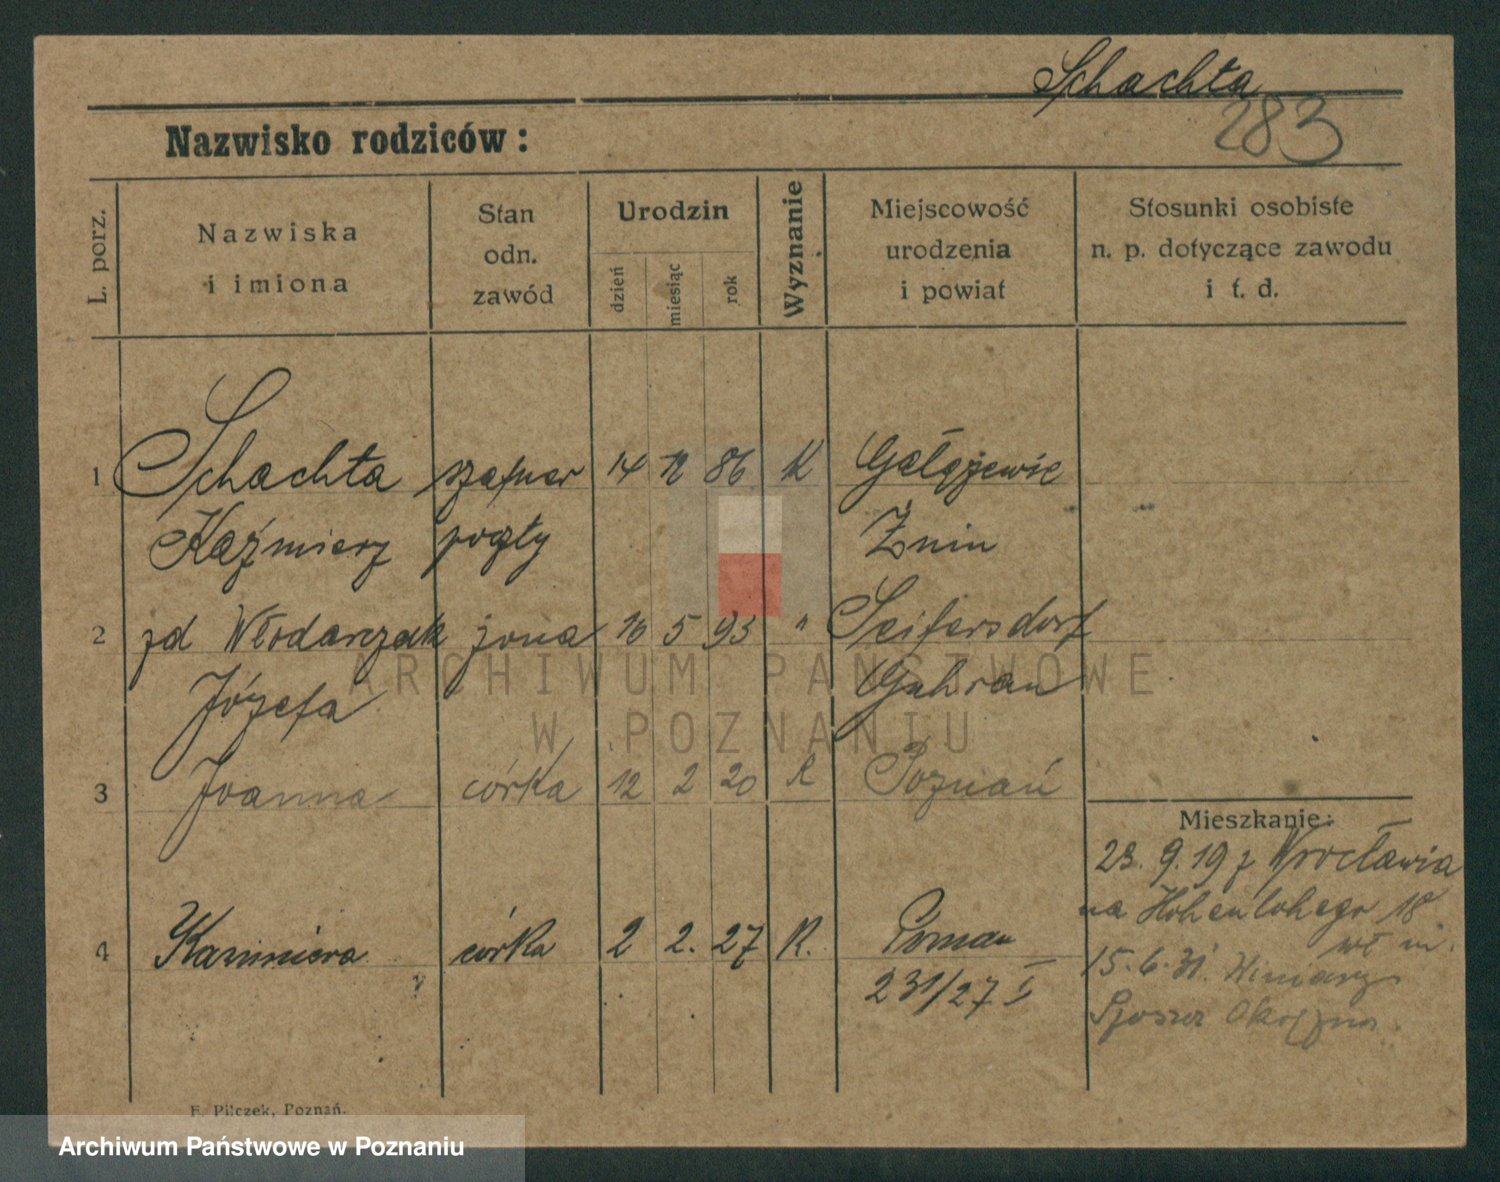 Schachta
283
Nazwisko rodziców:
L. porz.
Nazwiska
i imiona
Stan
odn.
zawód
Urodzin
dzień
miesiąc
rok
Wyznanie
Miejscowość
urodzenia
i powiat
Stosunki osobiste
n. p. dotyczące zawodu
i t. d.
1 Schachta 14 12 86 K
Kaźmierz poczty Żnin
2 zd Włodarczak żona 16 5 93 " Seifersdorf
Józefa
3 Joanna córka 12 2 20 K Poznań
Mieszkanie:
23. 9. 19 z Wrocławia
na Hohenlohego 18
4 Kazimiera córka 2 2. 27 K. Poznań
231/27 I
15. 6. 31. Winiary
Szosa Okrężna
F. Pilczek, Poznań.
ARCHIWUM PAŃSTWOWE
W POZNANIU
Archiwum Państwowe w Poznaniu